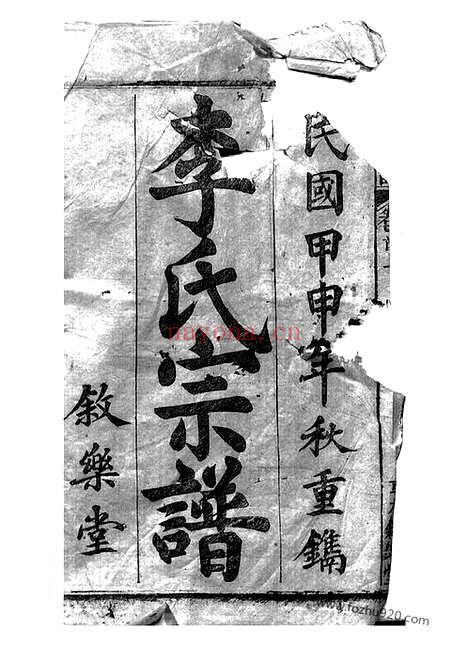 民國甲申年秋重鐫
李氏宗譜
敘樂堂
nayona.cn
www.fozhu920.com